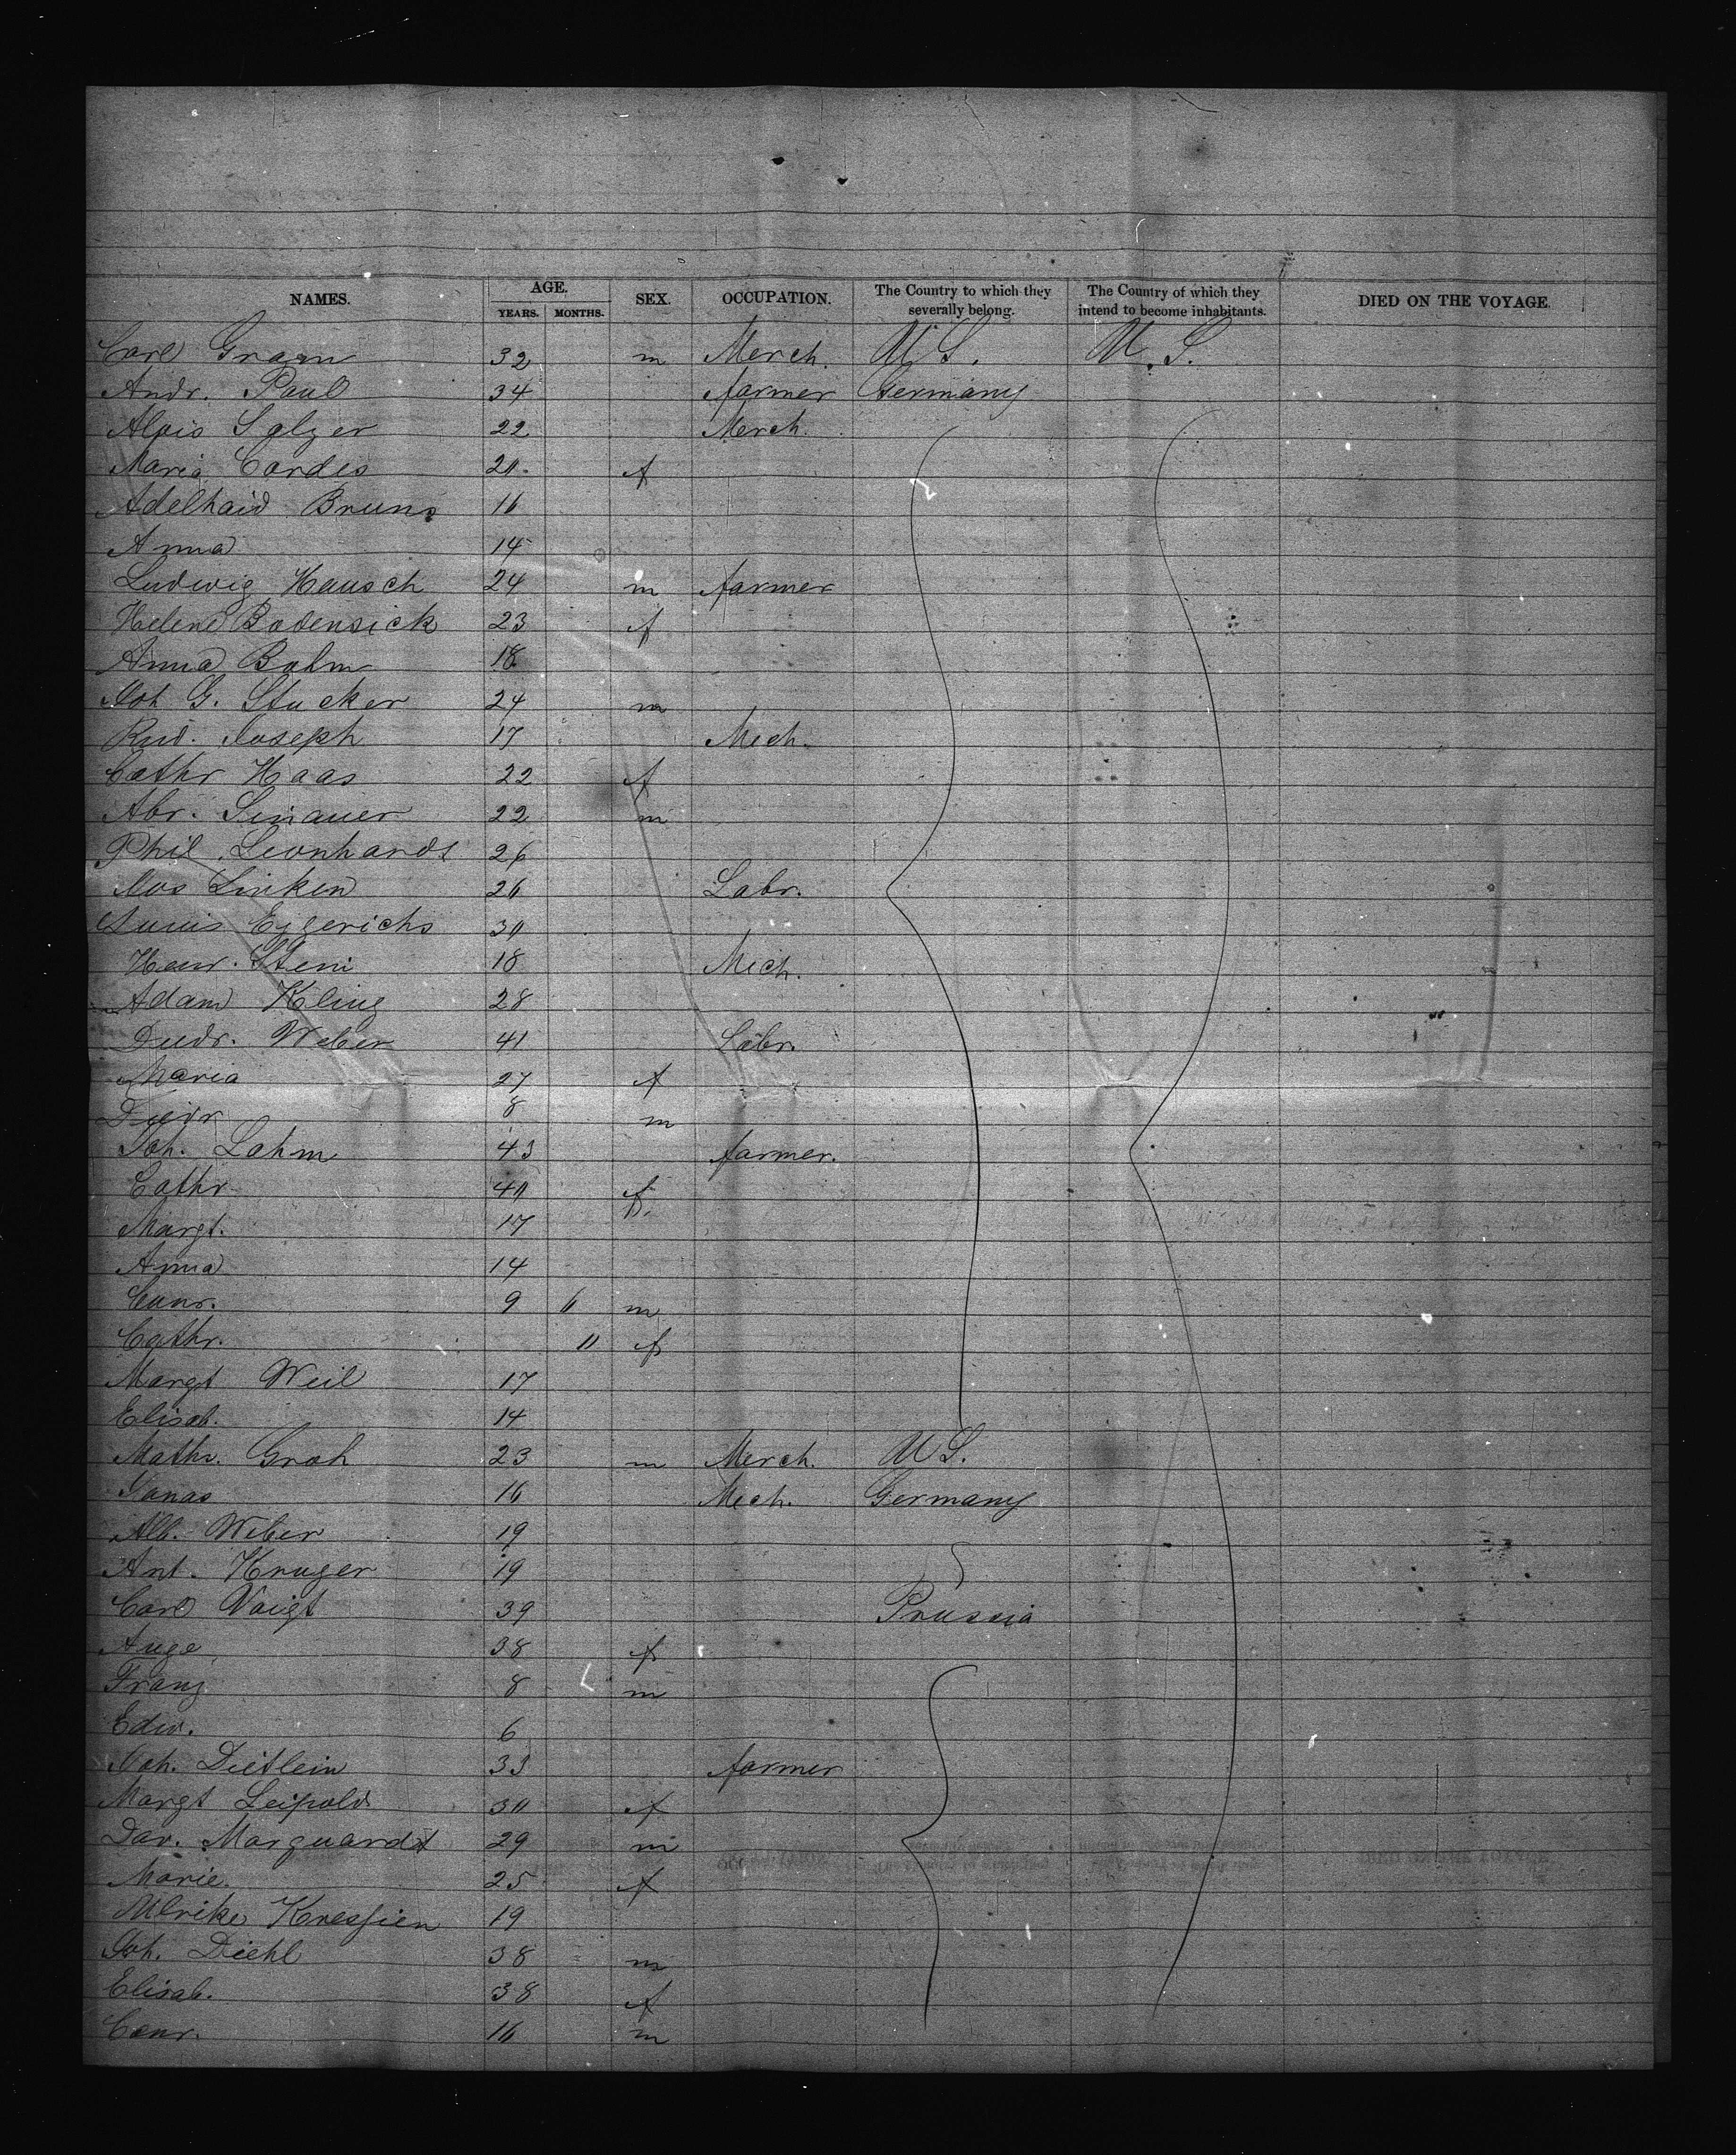 NAMES. AGE. SEX. OCCUPATION. The Country to which they severally belong. The Country of which they intend to become inhabitants. DIED ON THE VOYAGE.
YEARS. MONTHS.
Carl Gramm 32 m Merch. U.S. U.S.
Andr. Paul 34 farmer Germany
Alois Salzer 22 Merch.
Maria Cordes 20 f
Adelhaid Bruns 16
Anna 14
Ludwig Hausch 24 m farmer
Helene Bodensick 23 f
Anna Bohm 18
Joh G. Stucker 24 m
Rud. Joseph 17 Mech.
Cathr Haas 22 f
Abr. Sinauer 22 m
Phil. Leonhardt 26
Jos Linken 26 Labr.
Louis Eggerichs 30
Henr. Stein 18 Mech.
Adam Kling 28
Diedr. Weber 41 Labr.
Maria 27 f
Diedr 8 m
Joh. Lahm 43 farmer.
Cathr 40 f
Margt. 17 f.
Anna 14
Conr. 9 6 m
Cathr. 11 f
Margt Weil 17
Elisab. 14
Mathr. Groh 23 m Merch. U.S.
Jonas 16 Mech. Germany
Alb. Weber 19
Ant. Kruger 19
Carl Voigt 39 Prussia
Auge 38 f
Franz 8 m
Edw. 6
Joh. Dietlein 33 farmer
Margt Leipold 30 f
Dav. Marquardt 29 m
Marie. 25 f
Ulrike Kressien 19
Joh. Diehl 38 m
Elisab. 38 f
Conr. 16 m